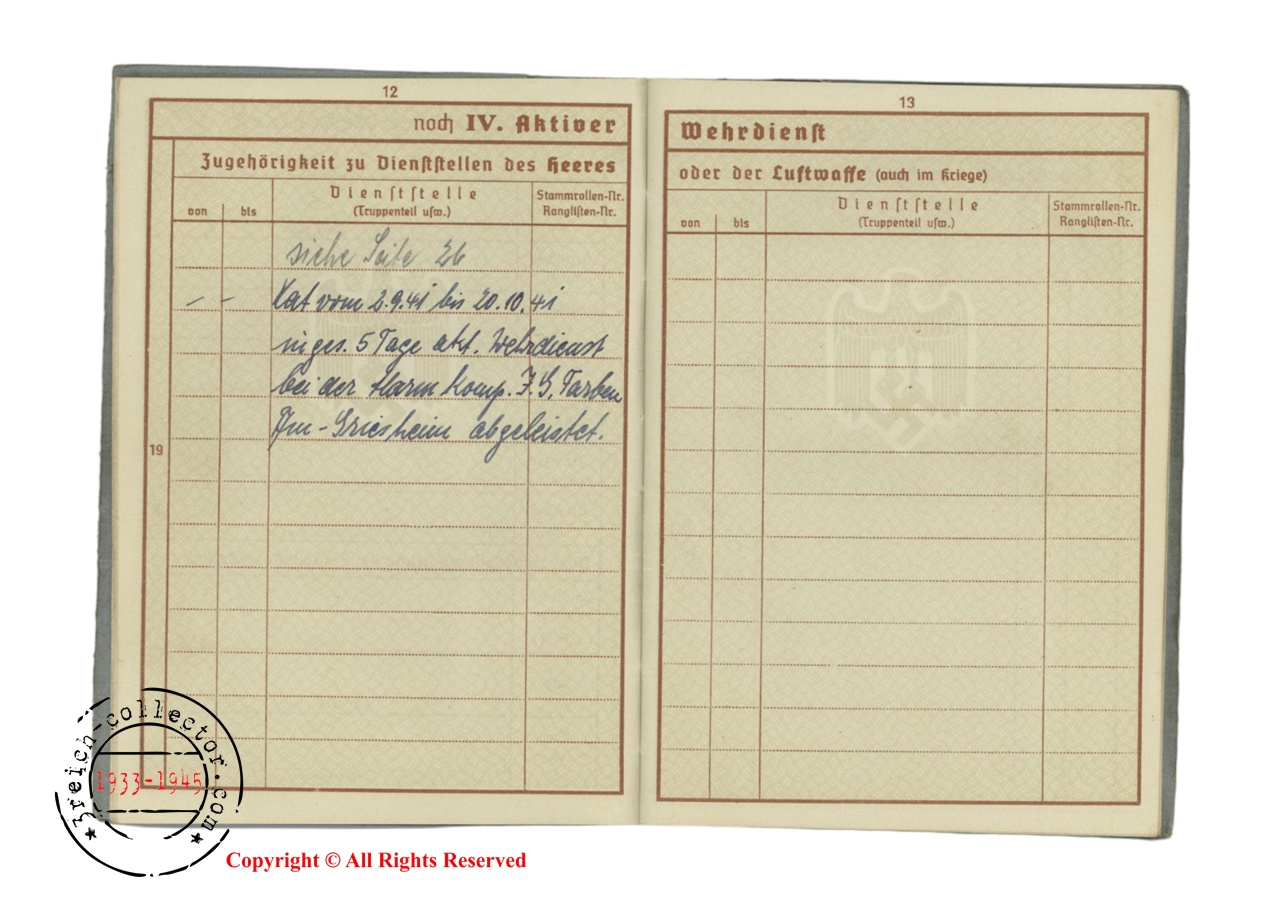 12
noch IV. Aktiver
Zugehörigkeit zu Dienststellen des Heeres
von
bis
Dienststelle
(Truppenteil usw.)
Stammrollen-Nr.
Ranglisten-Nr.
siehe Seite 26
- - Hat vom 2.9.41 bis 20.10.41
insges. 5 Tage akt. Wehrdienst
bei der Alarm Komp. I.G. Farben
Ffm-Griesheim abgeleistet.
19
13
Wehrdienst
oder der Luftwaffe (auch im Kriege)
von
bis
Dienststelle
(Truppenteil usw.)
Stammrollen-Nr.
Ranglisten-Nr.
*3reich-collector.com*
1933-1945
Copyright © All Rights Reserved